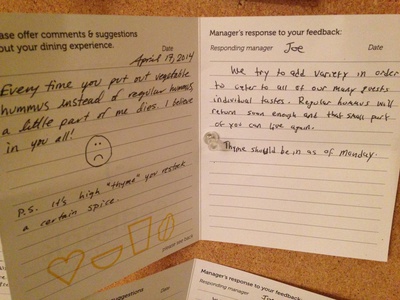 ase offer comments & suggestions
out your dining experience.
Date
April 17, 2014
Every time you put out vegetable
hummus instead of regular hummus,
a little part of me dies. I believe
in you all!
P.S. it's high "thyme" you restock
a certain spice.
please see back
Manager's response to your feedback:
Responding manager Joe Date
We try to add variety in order
to cater to all of our many guests
individual tastes. Regular hummus will
return soon enough and that small part
of you can live again.
Thyme should be in as of Monday.
suggestions
Date
Manager's response to your feedback:
Responding manager